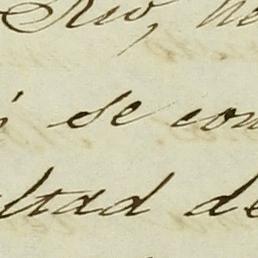 Rio, he
se com
ltad de